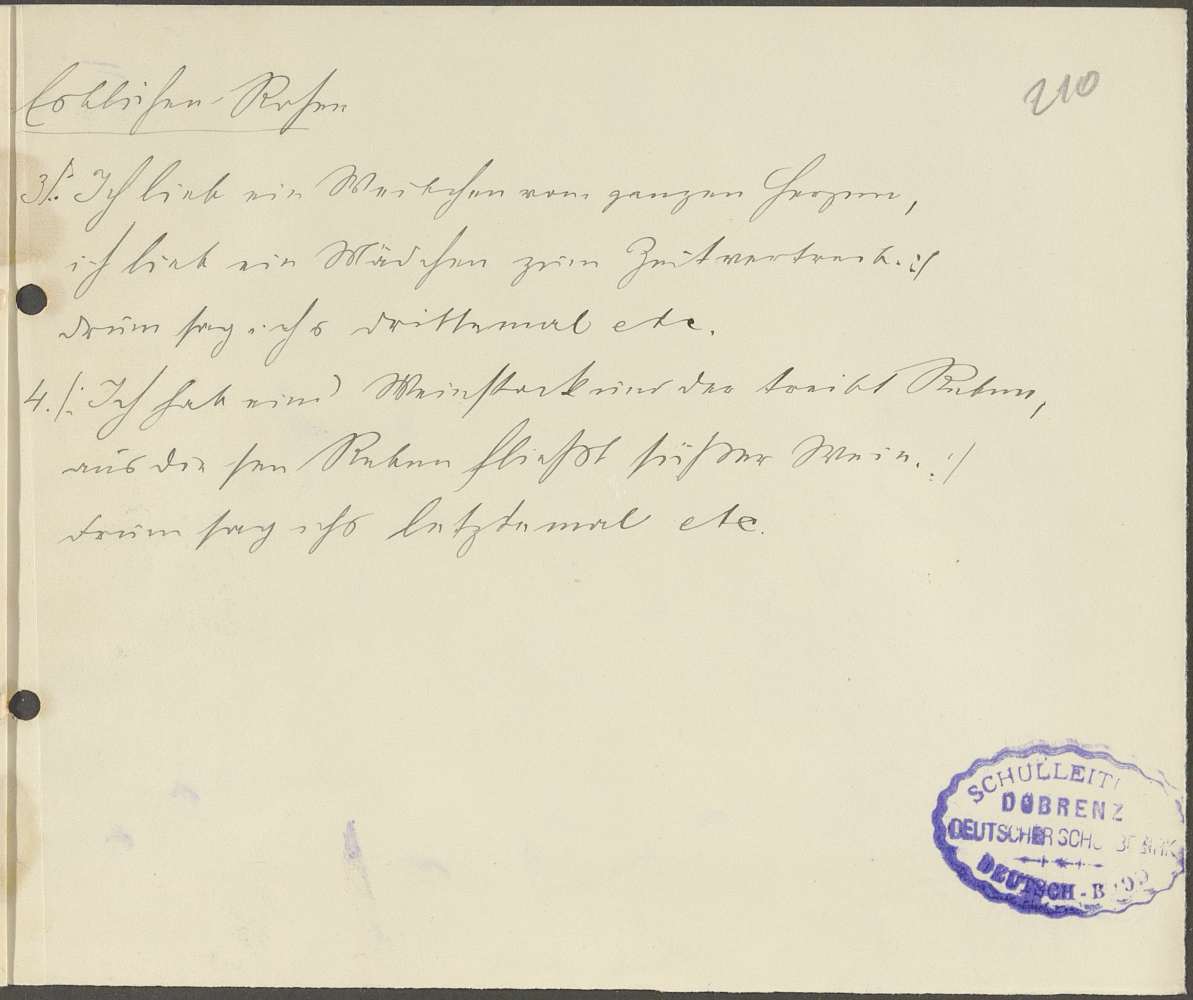 Es blühen Rosen
210
3./: Ich lieb ein Weibchen vom ganzen Herzen,
ich lieb ein Mädchen zum Zeitvertreib. :/
drum sag ichs drittemal etc.
4./: Ich hab einen Weinstock und der treibt Reben,
aus die sen Reben fließt süßer Wein. :/
drum sag ichs letztemal etc.
SCHULLEIT
DOBRENZ
DEUTSCHER SCH
DEUTSCH-B